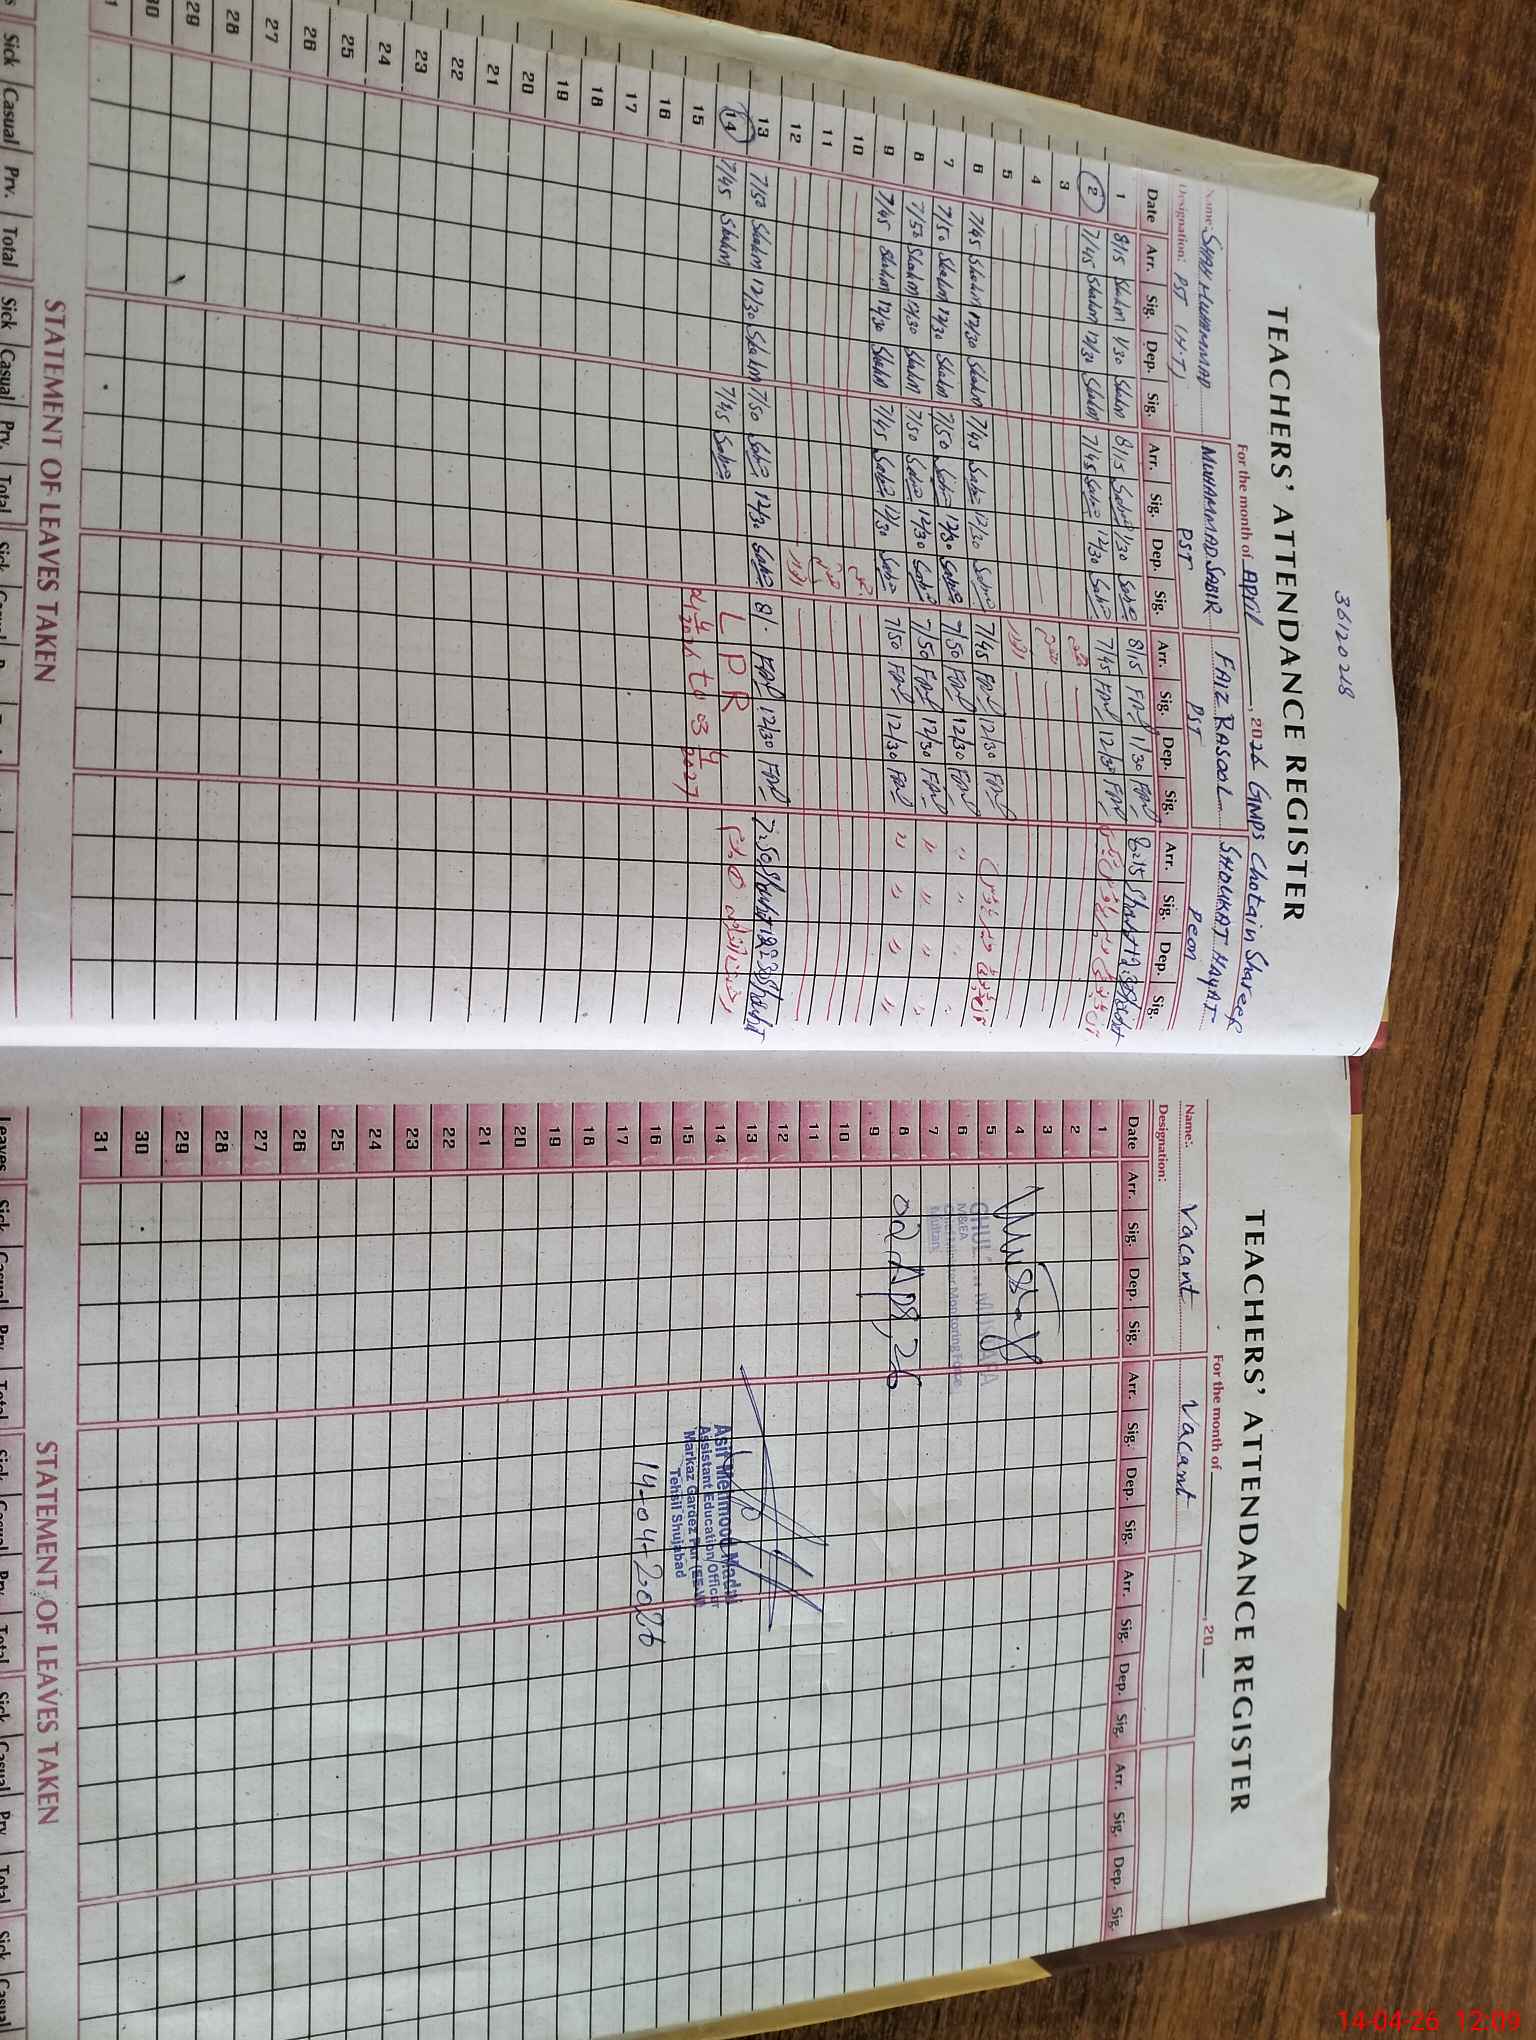 36120218
TEACHERS' ATTENDANCE REGISTER
For the month of April, 2026 GMPS Chotain Shareef
Name: SHAH MUHAMMAD MUHAMMAD SABIR FAIZ RASOOL SHOUKAT HAYAT
Designation: PST (H.T) PST PST Peon
Date Arr. Sig. Dep. Sig. Arr. Sig. Dep. Sig. Arr. Sig. Dep. Sig. Arr. Sig. Dep. Sig.
1 8/15 Shahm 1/30 Shahm 8/15 Sabir 1/30 Sabir 8/15 1/30 8:15
2 7/45 Shahm 12/30 Shahm 7/45 Sabir 12/30 Sabir 7/45 12/30
3
4
5
6 7/45 Shahm 12/30 Shahm 7/45 Sabir 12/30 Sabir 7/45 12/30
7 7/50 Shahm 12/30 Shahm 7/50 Sabir 12/30 Sabir 7/50 12/30 " " " "
8 7/50 Shahm 12/30 Shahm 7/50 Sabir 12/30 Sabir 7/50 12/30 " " " "
9 7/45 Shahm 12/30 Shahm 7/45 Sabir 12/30 Sabir 7/50 12/30 " " " "
10
11
12
13 7/50 Shahm 12/30 Shahm 7/50 Sabir 12/30 Sabir 8/. 12/30 7:50
14 7/45 Shahm 7/45 Sabir L P R
15 to 03 4 2027
16
17
18
19
20
21
22
23
24
25
26
27
28
29
30
STATEMENT OF LEAVES TAKEN
Sick Casual Prv. Total Sick Casual Prv. Total
TEACHERS' ATTENDANCE REGISTER
For the month of , 20
Name: Vacant Vacant
Designation:
Date Arr. Sig. Dep. Sig. Arr. Sig. Dep. Sig. Arr. Sig. Dep. Sig. Arr. Sig. Dep. Sig.
1
2
3
4
5
6
7
8
9
10
11
12
13
14
15
16
17
18
19
20
21
22
23
24
25
26
27
28
29
30
31
M&EA
Chief Minister Monitoring Force
Multan
02 Apr, 26
Asif Mehmood Madni
Assistant Education Officer
Markaz Gardez Pur
Tehsil Shujabad
14-04-2026
STATEMENT OF LEAVES TAKEN
Leaves Sick Casual Prv. Total Sick Casual Prv. Total Sick Casual Prv. Total Sick Casual
14-04-26 12:09